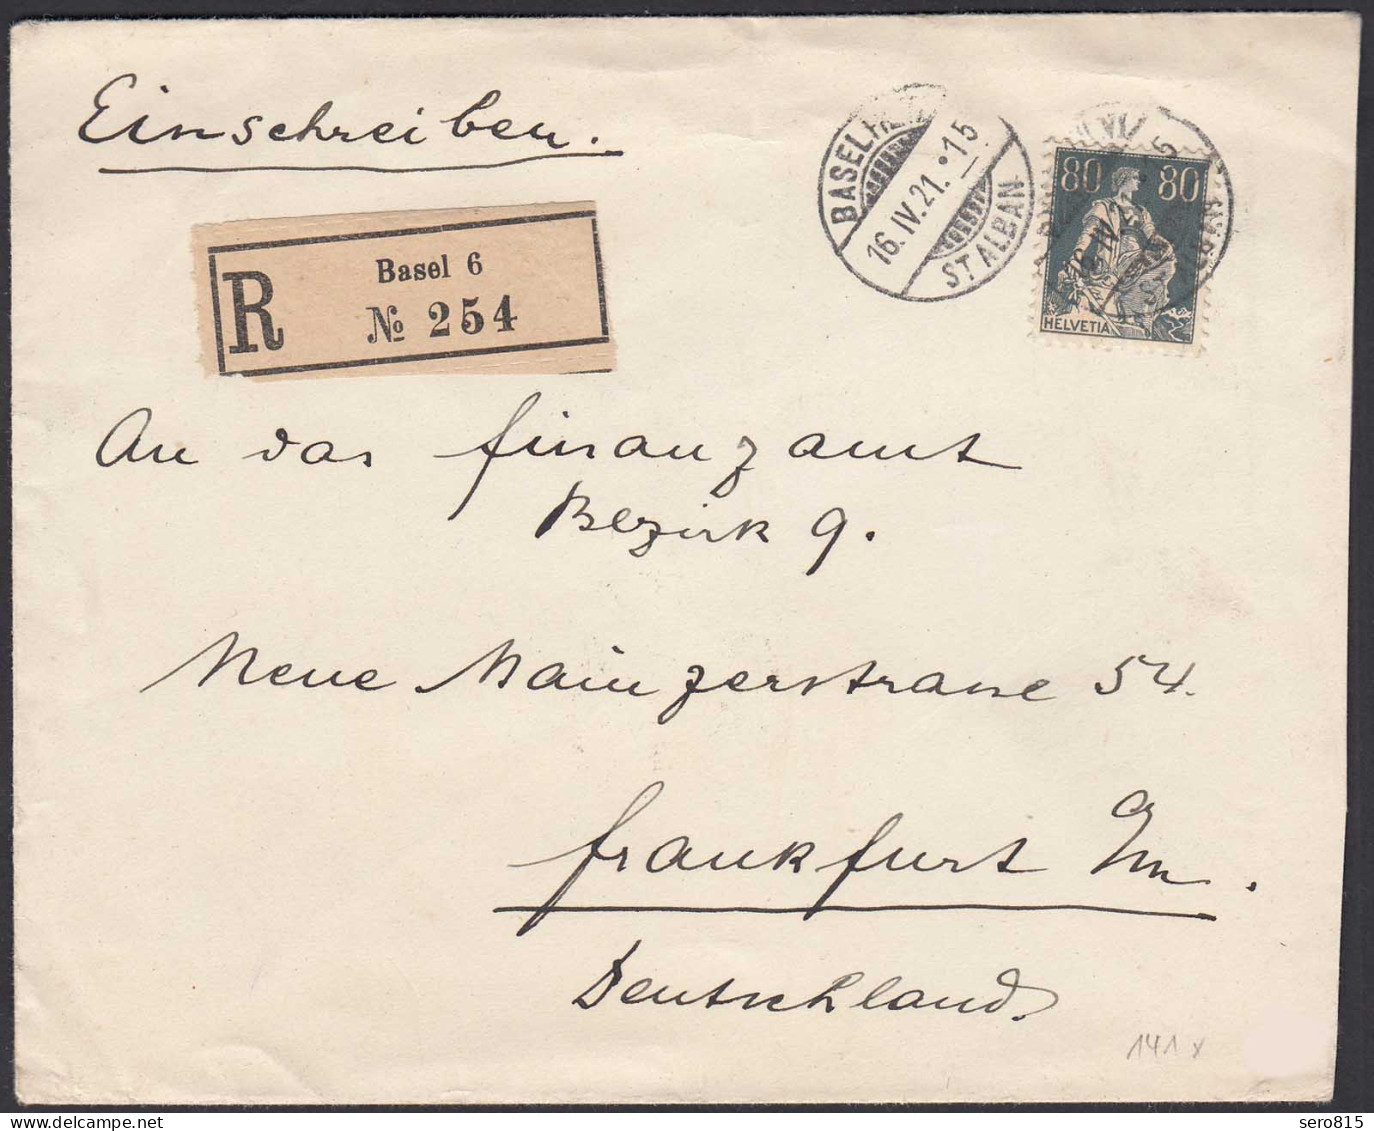 Einschreiben.
BASEL.
16.IV.21.•15
ST ALBAN
80 80
HELVETIA
R
Basel 6
№ 254
An das Finanzamt
Bezirk 9.
Neue Mainzerstrasse 54.
Frankfurt a/m.
Deutschland.
141x
www.delcampe.net
sero815